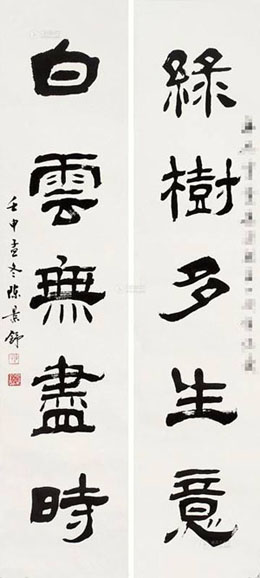 綠樹多生意
白雲無盡時
壬申孟冬陳景舒